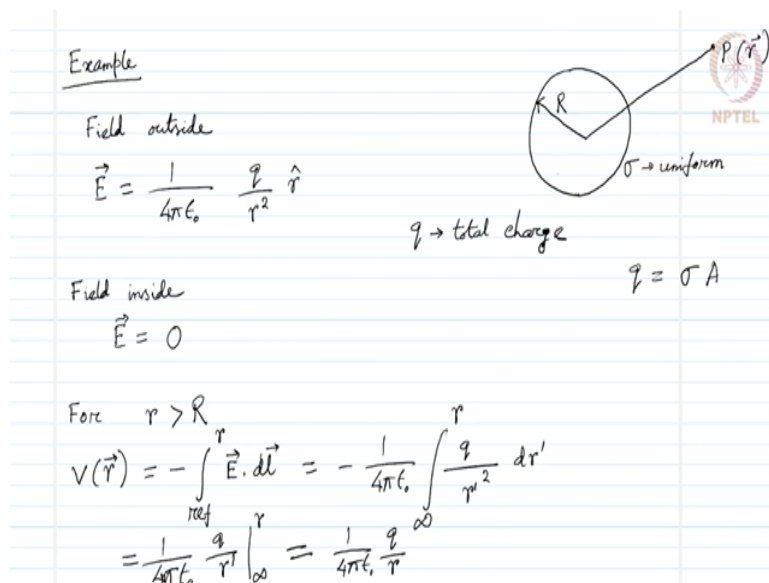 Example
P(r⃗)
R
NPTEL
Field outside
σ → uniform
E⃗ = 1/4πε₀ q/r² r̂
q → total charge
q = σ A
Field inside
E⃗ = 0
For r > R
V(r⃗) = - ∫_ref^r E⃗ . dl⃗ = - 1/4πε₀ ∫_∞^r q/r'² dr'
= 1/4πε₀ q/r' |_∞^r = 1/4πε₀ q/r